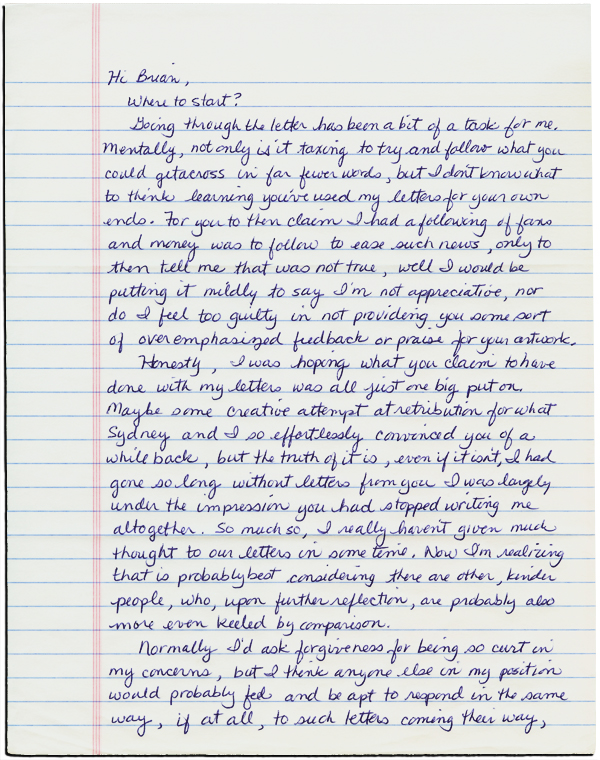 Hi Brian,
Where to start?
Going through the letter has been a bit of a task for me.
Mentally, not only is it taxing to try and follow what you
could get across in far fewer words, but I don't know what
to think learning you've used my letters for your own
ends. For you to then claim I had a following of fans
and money was to follow to ease such news, only to
then tell me that was not true, well I would be
putting it mildly to say I'm not appreciative, nor
do I feel too guilty in not providing you some sort
of overemphasized feedback or praise for your artwork.
Honestly, I was hoping what you claim to have
done with my letters was all just one big put on.
Maybe some creative attempt at retribution for what
Sydney and I so effortlessly convinced you of a
while back, but the truth of it is, even if it isn't, I had
gone so long without letters from you I was largely
under the impression you had stopped writing me
altogether. So much so, I really haven't given much
thought to our letters in some time. Now I'm realizing
that is probably best considering there are other, kinder
people, who, upon further reflection, are probably also
more even keeled by comparison.
Normally I'd ask forgiveness for being so curt in
my concerns, but I think anyone else in my position
would probably feel and be apt to respond in the same
way, if at all, to such letters coming their way,